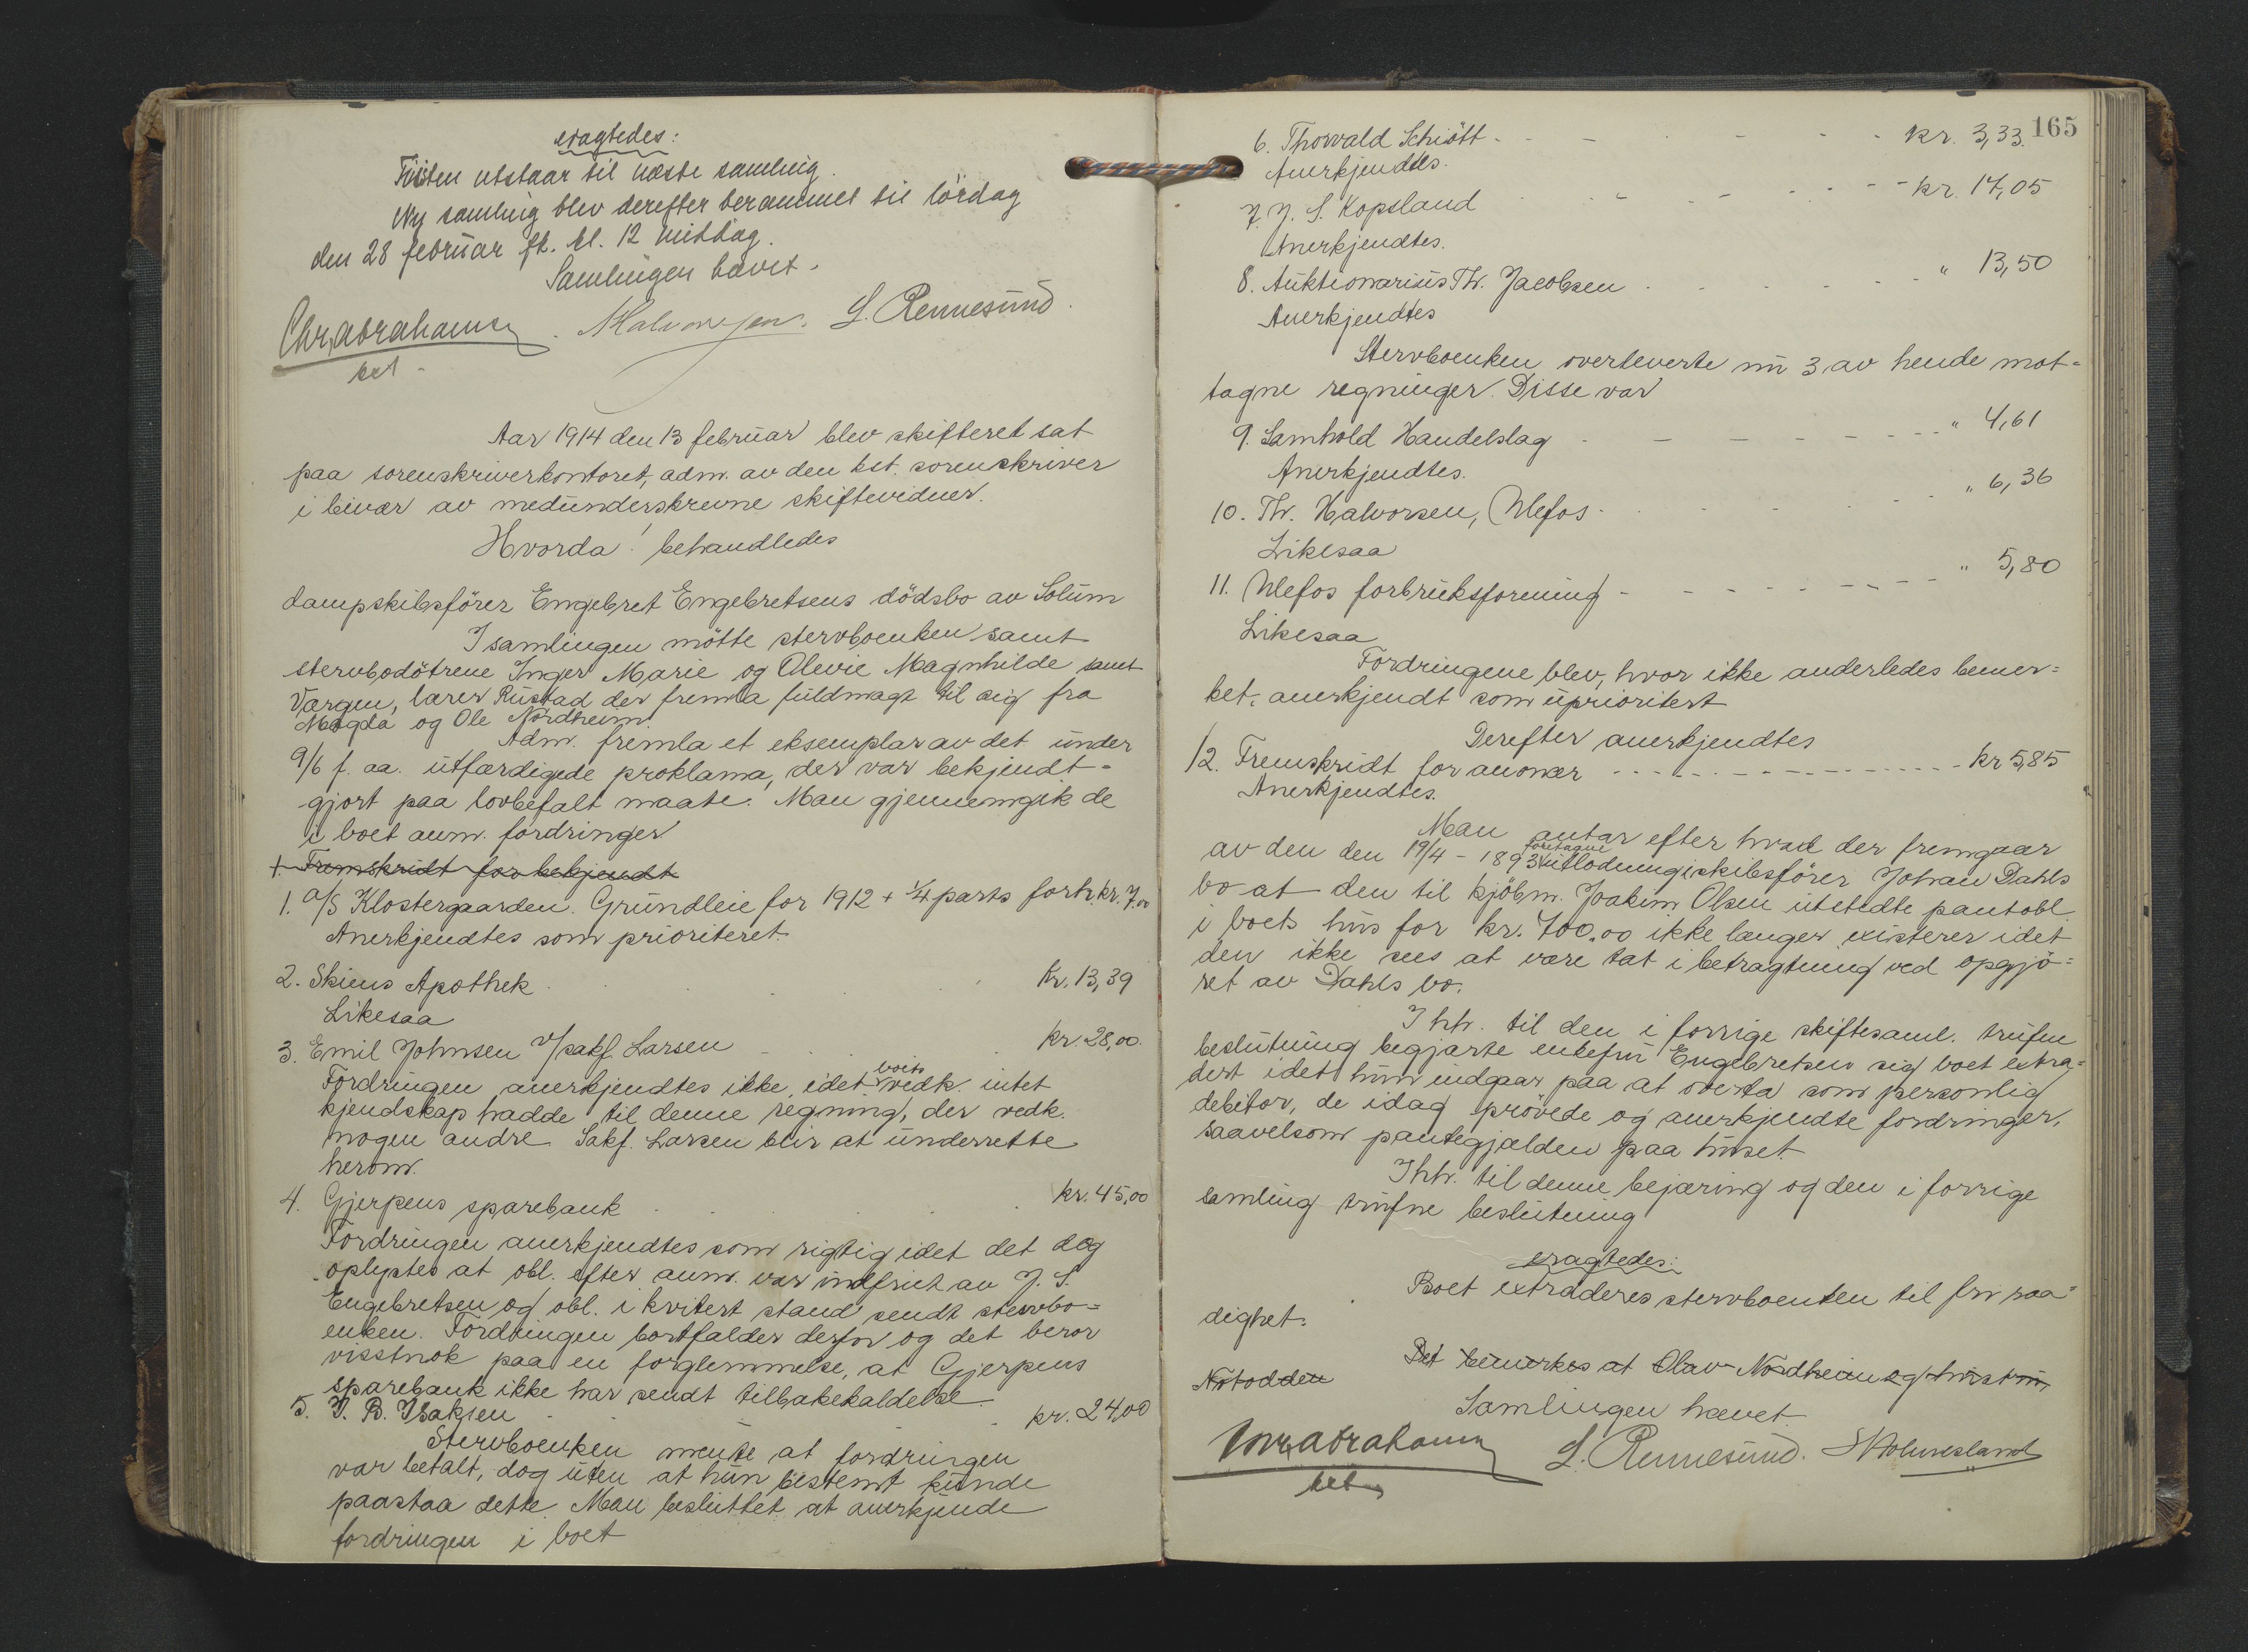 eragtedes:
Tvisten utstaar til næste samling.
Ny samling blev derefter berammet til lördag
den 28 februar ft. kl. 12 middag.
Samlingen hævet.
Chr. Abrahamsen
kst.
L. Rennesund.
Aar 1914 den 13 februar blev skifteret sat
paa sorenskriverkontoret, adm. av den kst. sorenskriver
i bivær av medunderskrevne skiftevidner.
Hvorda! behandledes
dampskibsförer Engebret Engebretsens dödsbo av Solum
I samlingen mötte stervboenken samt
stervbodötrene Inger Marie og Olevie Magnhilde samt
Værgen, lærer Rustad der fremla fuldmagt til sig fra
Magda og Ole Nordheim.
Adm. fremla et eksemplar av det under
9/6 f. aa. utfærdigede proklama, der var bekjendt-
gjort paa lovbefalt maate. Man gjennemgik de
i boet anm. fordringer
1. Fremskridt for bekjendt
1. A/S Klostergaarden. Grundleie for 1912 + 1/4 parts forh. kr. 7.00
Anerkjendtes som prioriteret.
2. Skiens Apothek kr. 13,39
Likesaa
3. Emil Johnsen v/sakf. Larsen kr. 28,00.
Fordringen anerkjendtes ikke, idet boets vedk. intet
kjendskap hadde til denne regning, der vedk.
nogen andre. Sakf. Larsen blir at underrette
herom.
4. Gjerpens sparebank kr. 45,00
Fordringen anerkjendtes som rigtig idet det dog
oplystes at obl. efter anm. var indfriet av J. S.
Engebretsen og obl. i kvitert stand sendt stervbo-
enken. Fordringen bortfalder derfor og det beror
visstnok paa en forglemmelse, at Gjerpens
sparebank ikke har sendt tilbakekaldelse
5. I. B. Isaksen kr. 24,00
Stervboenken mente at fordringen
var betalt, dog uten at hun bestemt kunde
paastaa dette. Man besluttet at anerkjende
fordringen i boet
165
6. Thorvald Schiött - kr. 3,33.
Anerkjendtes.
7. J. S. Kopsland - kr. 17,05
Anerkjendtes.
8. Auktionarius Th. Jacobsen " 13,50
Anerkjendtes
Stervboenken overleverte nu 3 av hende mot-
tagne regninger. Disse var
9. Samhold Handelslag - " 4,61
Anerkjendtes.
10. Th. Halvorsen, Ulefos - " 6,36
Likesaa
11. Ulefos forbruksforening - " 5,80
Likesaa
Fordringene blev, hvor ikke anderledes bemer-
ket, anerkjendt som uprioritert
Derefter anerkjendtes
12. Fremskridt for anoncer - kr 5,85
Anerkjendtes.
Man antar efter hvad der fremgaar
av den den 19/4 - 1893 foretagne utlodning i skibsförer Johan Dahls
bo at den til kjöbm. Joakim Olsen utstedte pantobl.
i boets hus for kr. 700,00 ikke længer existerer idet
den ikke sees at være tat i betragtning ved opgjö-
ret av Dahls bo.
I hh. til den i forrige skiftesaml. trufne
beslutning begjærte enkefru Engebretsen sig boet extra-
dert idet hun indgaar paa at overta som personlig
debitor, de idag prövede og anerkjendte fordringer,
saavelsom pantegjælden paa huset.
I hh. til denne begjæring og den i forrige
samling trufne beslutning
eragtedes:
Boet extraderes stervboenken til fri raa-
dighet.
Det bemerkes at Olav Nordheim og hustru,
Notodden
Samlingen hævet.
Chr. Abrahamsen
kst.
L. Rennesund.